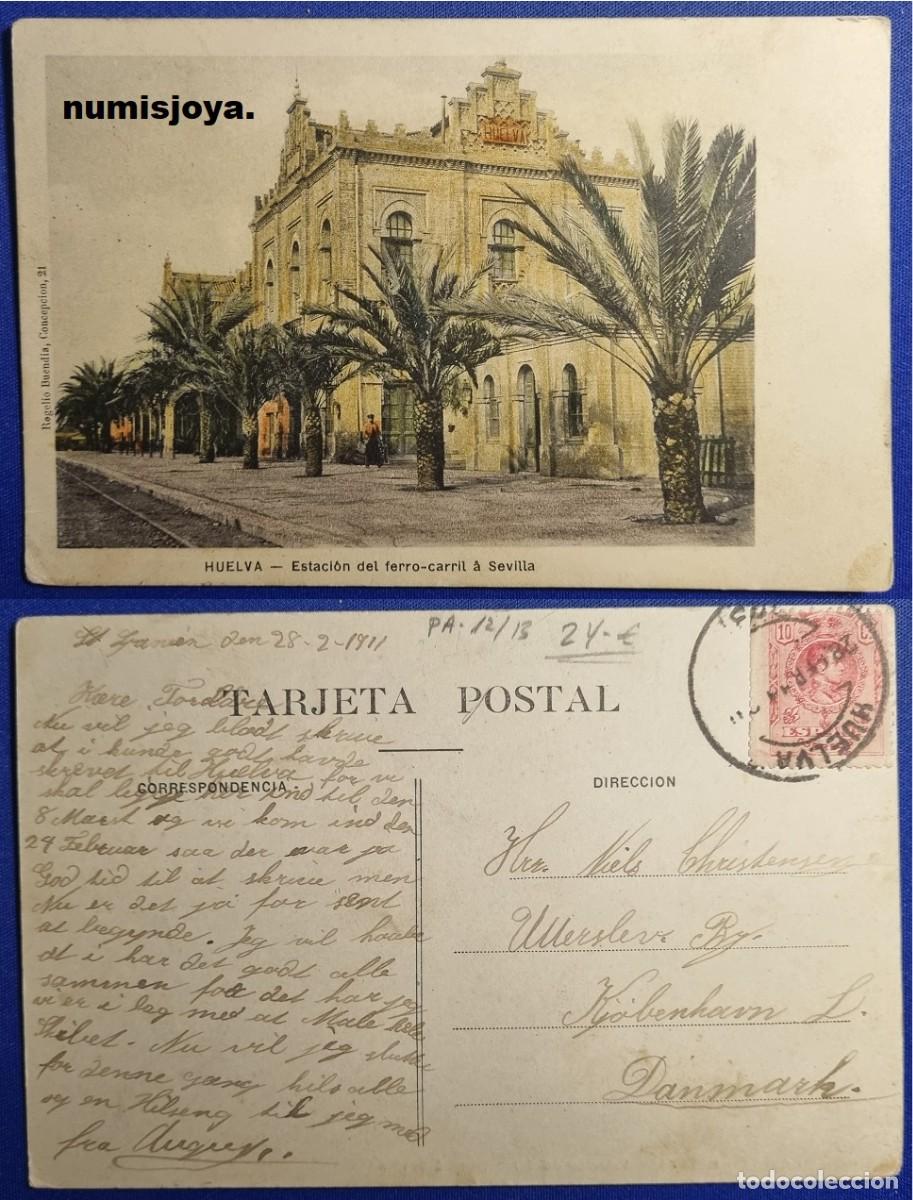 numisjoya.
HUELVA
Rogelio Buendía, Concepcion, 21
HUELVA — Estación del ferro-carril á Sevilla
den 28-2-1911
PA-12/13
24-€
TARJETA POSTAL
Kære
Nu vil jeg blodt skrive
at i kunde godt havde
skrevet til Huelva for vi
skal ligge her ind til den
8 Marst og vi kom ind den
24 Februar saa der var jo
God tid til at skrive men
Nu er det jo for sent
at begynde. Jeg vil haabe
at i har det godt alle
sammen for det har jeg
vi er i lag med at Male hele
Skibet. Nu vil jeg slutte
for denne gang hils alle
og en Hilseng til jeg med
fra August.
CORRESPONDENCIA
DIRECCION
10 Cs
HUELVA
Hrr. Niels Christensen
Utterslev By.
Kjöbenhavn L.
Danmark.
todocoleccion